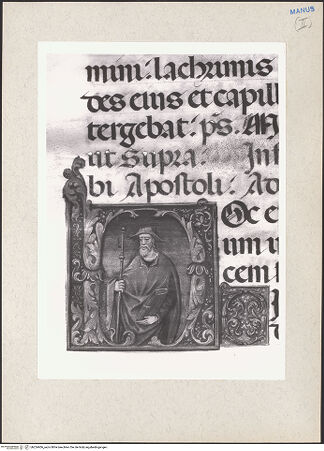 MANUS
(II)
mini: lachrimis
des eius et capill
tergebat. ps. M
ut Supra. In f
bi Apostoli. Ad
Oc e
um u
cem